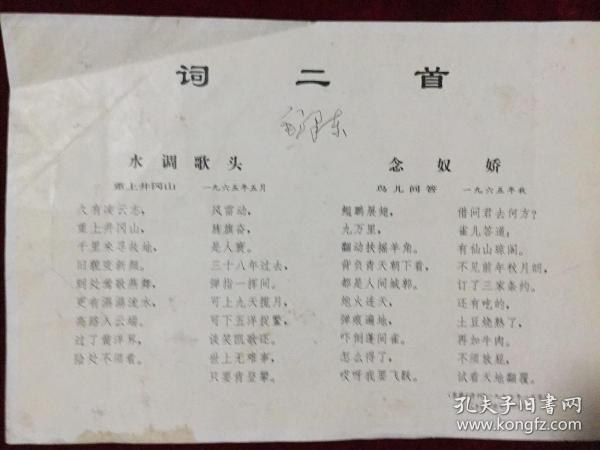 词二首
毛泽东
水调歌头
重上井冈山 一九六五年五月
久有凌云志，
重上井冈山。
千里来寻故地，
旧貌变新颜。
到处莺歌燕舞，
更有潺潺流水，
高路入云端。
过了黄洋界，
险处不须看。
风雷动，
旌旗奋，
是人寰。
三十八年过去，
弹指一挥间。
可上九天揽月，
可下五洋捉鳖，
谈笑凯歌还。
世上无难事，
只要肯登攀。
念奴娇
鸟儿问答 一九六五年秋
鲲鹏展翅，
九万里，
翻动扶摇羊角。
背负青天朝下看，
都是人间城郭。
炮火连天，
弹痕遍地，
吓倒蓬间雀。
怎么得了，
哎呀我要飞跃。
借问君去何方？
雀儿答道：
有仙山琼阁。
不见前年秋月朗，
订了三家条约。
还有吃的，
土豆烧熟了，
再加牛肉。
不须放屁，
试看天地翻覆。
孔夫子旧书网
www.kongfz.com